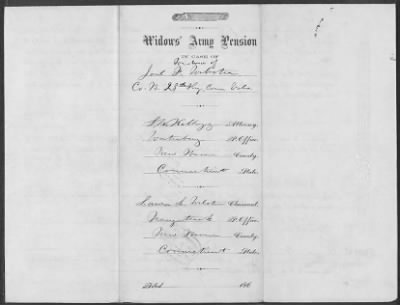 Widows' Army Pension
IN CASE OF
Widow of
Joel W. Webster
Co. 28th Reg. Conn Vols
Kellogg Attorney,
Waterbury P. Office,
New Haven County,
Connecticut State.
Webster Claimant,
Naugatuck P. Office,
New Haven County,
Connecticut State.
Filed 186